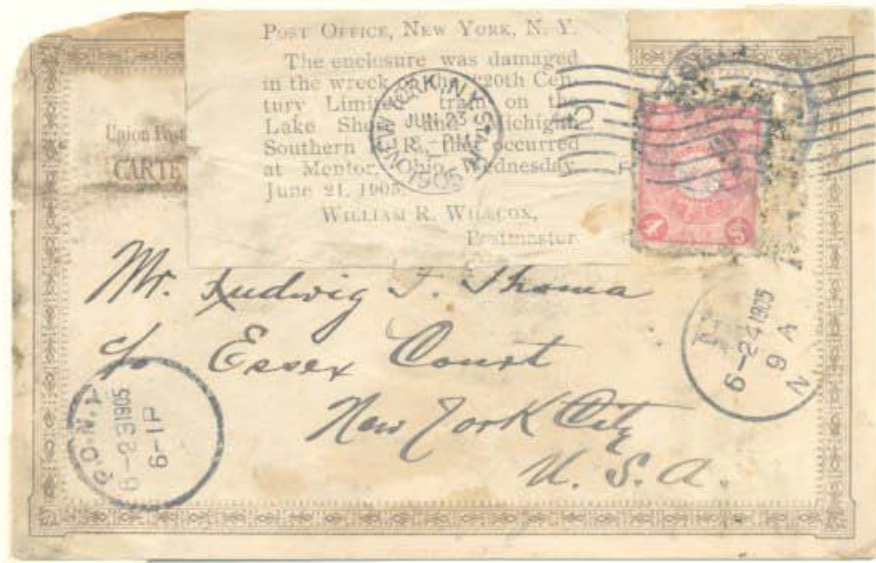 POST OFFICE, NEW YORK, N. Y.
The enclosure was damaged
in the wreck of the "20th Cen-
tury Limited" train on the
Lake Shore and Michigan
Southern R. R. that occurred
at Mentor, Ohio, Wednesday,
June 21, 1905.
WILLIAM R. WILLCOX,
Postmaster.
NEW YORK, N.Y.
JUN 23
1905
Union Post
CARTE
Mr. Ludwig F. Thoma
c/o Essex Court
New York City
U. S. A.
6-24 1905
9 A
N
G.O.N.Y.
6-23 1905
6-1P